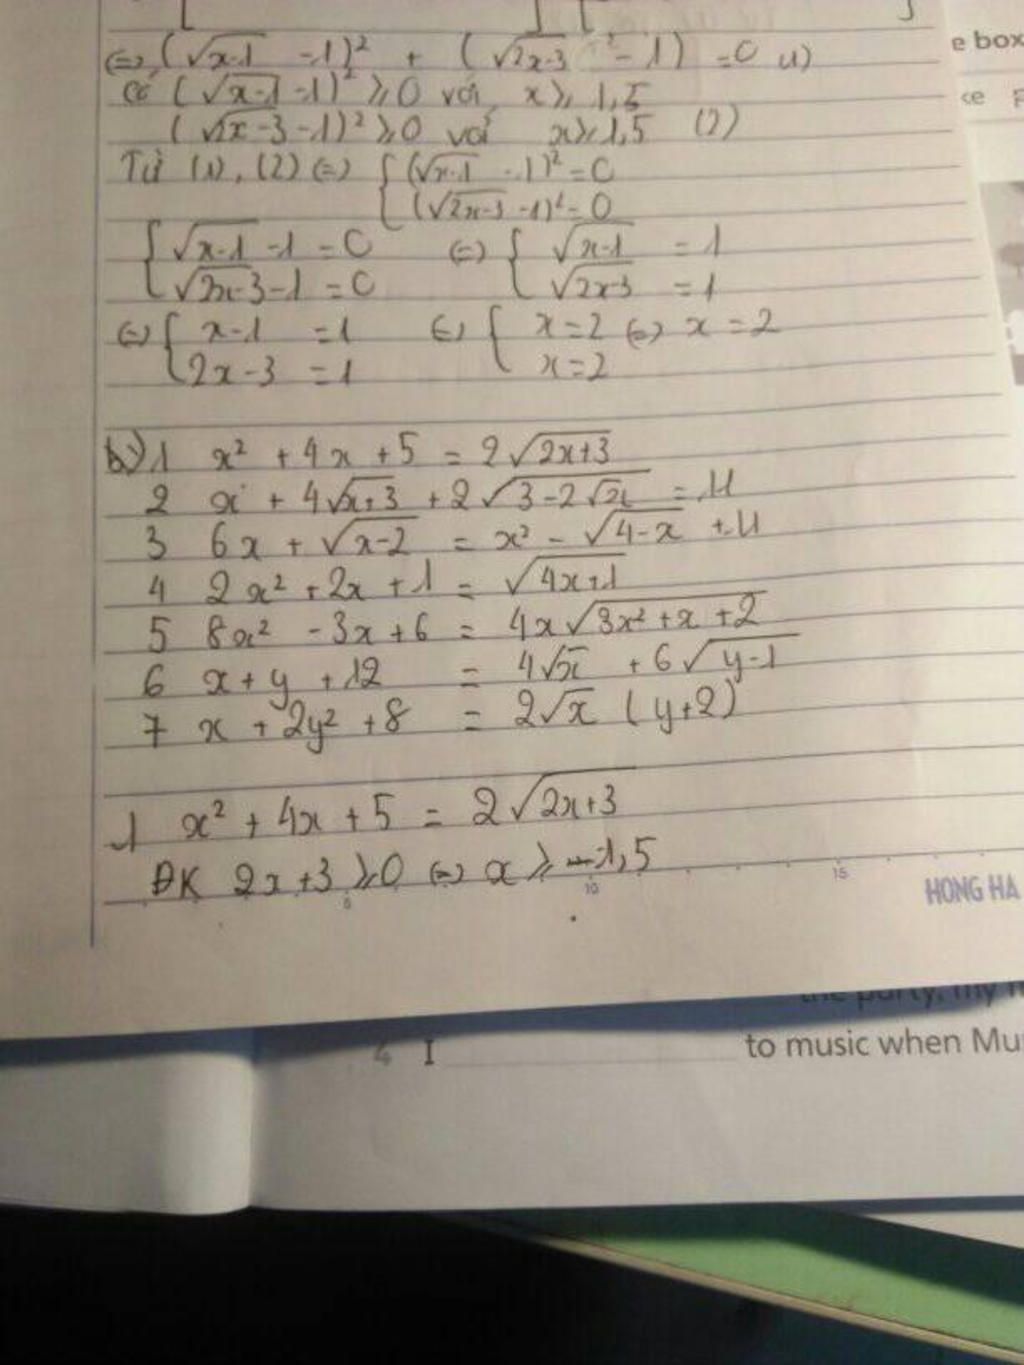 ⇔ (√x-1 -1)² + (√2x-3 - 1) = 0 (1)
e box
Có (√x-1 -1)² ≥ 0 với x ≥ 1,5
(√2x-3 -1)² ≥ 0 với x ≥ 1,5 (2)
Từ (1), (2) ⇔ { (√x-1 -1)² = 0
(√2x-3 -1)² = 0
{ √x-1 -1 = 0 ⇔ { √x-1 = 1
√2x-3 -1 = 0 √2x-3 = 1
⇔ { x-1 = 1 ⇔ { x = 2 ⇔ x = 2
2x-3 = 1 x = 2
b) 1 x² + 4x + 5 = 2√2x+3
2 x + 4√x+3 + 2√3-2√x = 11
3 6x + √x-2 = x² - √4-x + 11
4 2x² + 2x + 1 = √4x+1
5 8x² - 3x + 6 = 4x√3x²+x+2
6 x + y + 12 = 4√x + 6√y-1
7 x + 2y² + 8 = 2√x (y+2)
1 x² + 4x + 5 = 2√2x+3
ĐK 2x+3 ≥ 0 ⇔ x ≥ -1,5
5 10 15
HONG HA
the party, my
4 I
to music when Mu